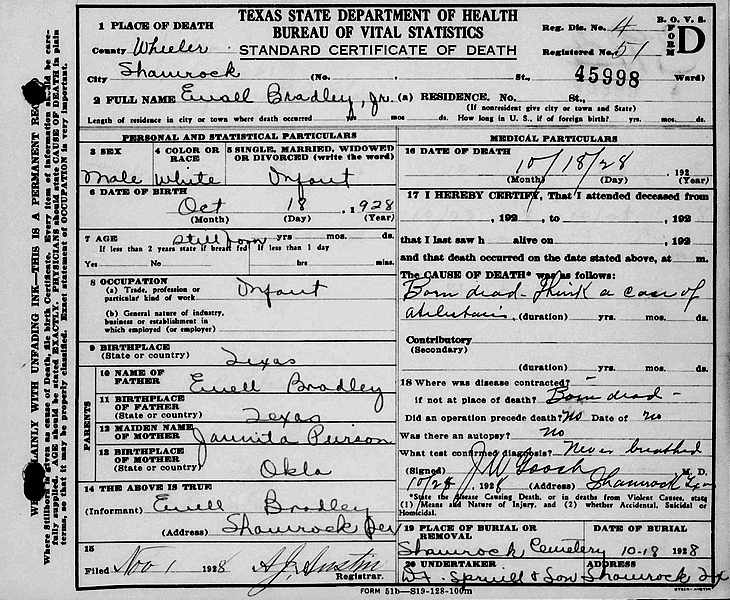 TEXAS STATE DEPARTMENT OF HEALTH
BUREAU OF VITAL STATISTICS
STANDARD CERTIFICATE OF DEATH
B. O. V. S.
FORM D
Reg. Dis. No. 4
Registered No. 51
1 PLACE OF DEATH
County Wheeler
City Shamrock (No. St., 45998 Ward)
2 FULL NAME Ewell Bradley, Jr. (a) RESIDENCE. No. St.,
(If nonresident give city or town and State)
Length of residence in city or town where death occurred yrs. mos. ds. How long in U. S., if of foreign birth? yrs. mos. ds.
PERSONAL AND STATISTICAL PARTICULARS
3 SEX 4 COLOR OR RACE 5 SINGLE, MARRIED, WIDOWED OR DIVORCED (write the word)
Male White Infant
6 DATE OF BIRTH
Oct 18, 1928
(Month) (Day) (Year)
7 AGE Still born yrs. mos. ds.
If less than 2 years state if breast fed If less than 1 day
Yes No hrs mins.
8 OCCUPATION
(a) Trade, profession or particular kind of work Infant
(b) General nature of industry, business or establishment in which employed (or employer)
9 BIRTHPLACE
(State or country) Texas
PARENTS
10 NAME OF FATHER Ewell Bradley
11 BIRTHPLACE OF FATHER
(State or country) Texas
12 MAIDEN NAME OF MOTHER Jaunita Purson
13 BIRTHPLACE OF MOTHER
(State or country) Okla
14 THE ABOVE IS TRUE
(Informant) Ewell Bradley
(Address) Shamrock Tex
15
Filed Nov 1 1928 A J Austin
Registrar.
MEDICAL PARTICULARS
16 DATE OF DEATH
10/18/28, 192
(Month) (Day) (Year)
17 I HEREBY CERTIFY, That I attended deceased from
, 192 , to , 192
that I last saw h alive on , 192
and that death occurred on the date stated above, at m.
The CAUSE OF DEATH* was as follows:
Born dead - Think a case of
(duration) yrs. mos. ds.
Contributory
(Secondary)
(duration) yrs. mos. ds.
18 Where was disease contracted?
if not at place of death? Born dead -
Did an operation precede death? No Date of no
Was there an autopsy? no
What test confirmed diagnosis? Never breathed
(Signed) J W Gooch M. D.
10/28, 1928 (Address) Shamrock Tex
*State the disease Causing Death, or in deaths from Violent Causes, state
(1) Means and Nature of Injury, and (2) whether Accidental, Suicidal or
Homicidal.
19 PLACE OF BURIAL OR REMOVAL DATE OF BURIAL
Shamrock Cemetery 10-18 1928
20 UNDERTAKER ADDRESS
Spruill & Son Shamrock Tex
FORM 51b—S19-128-100m